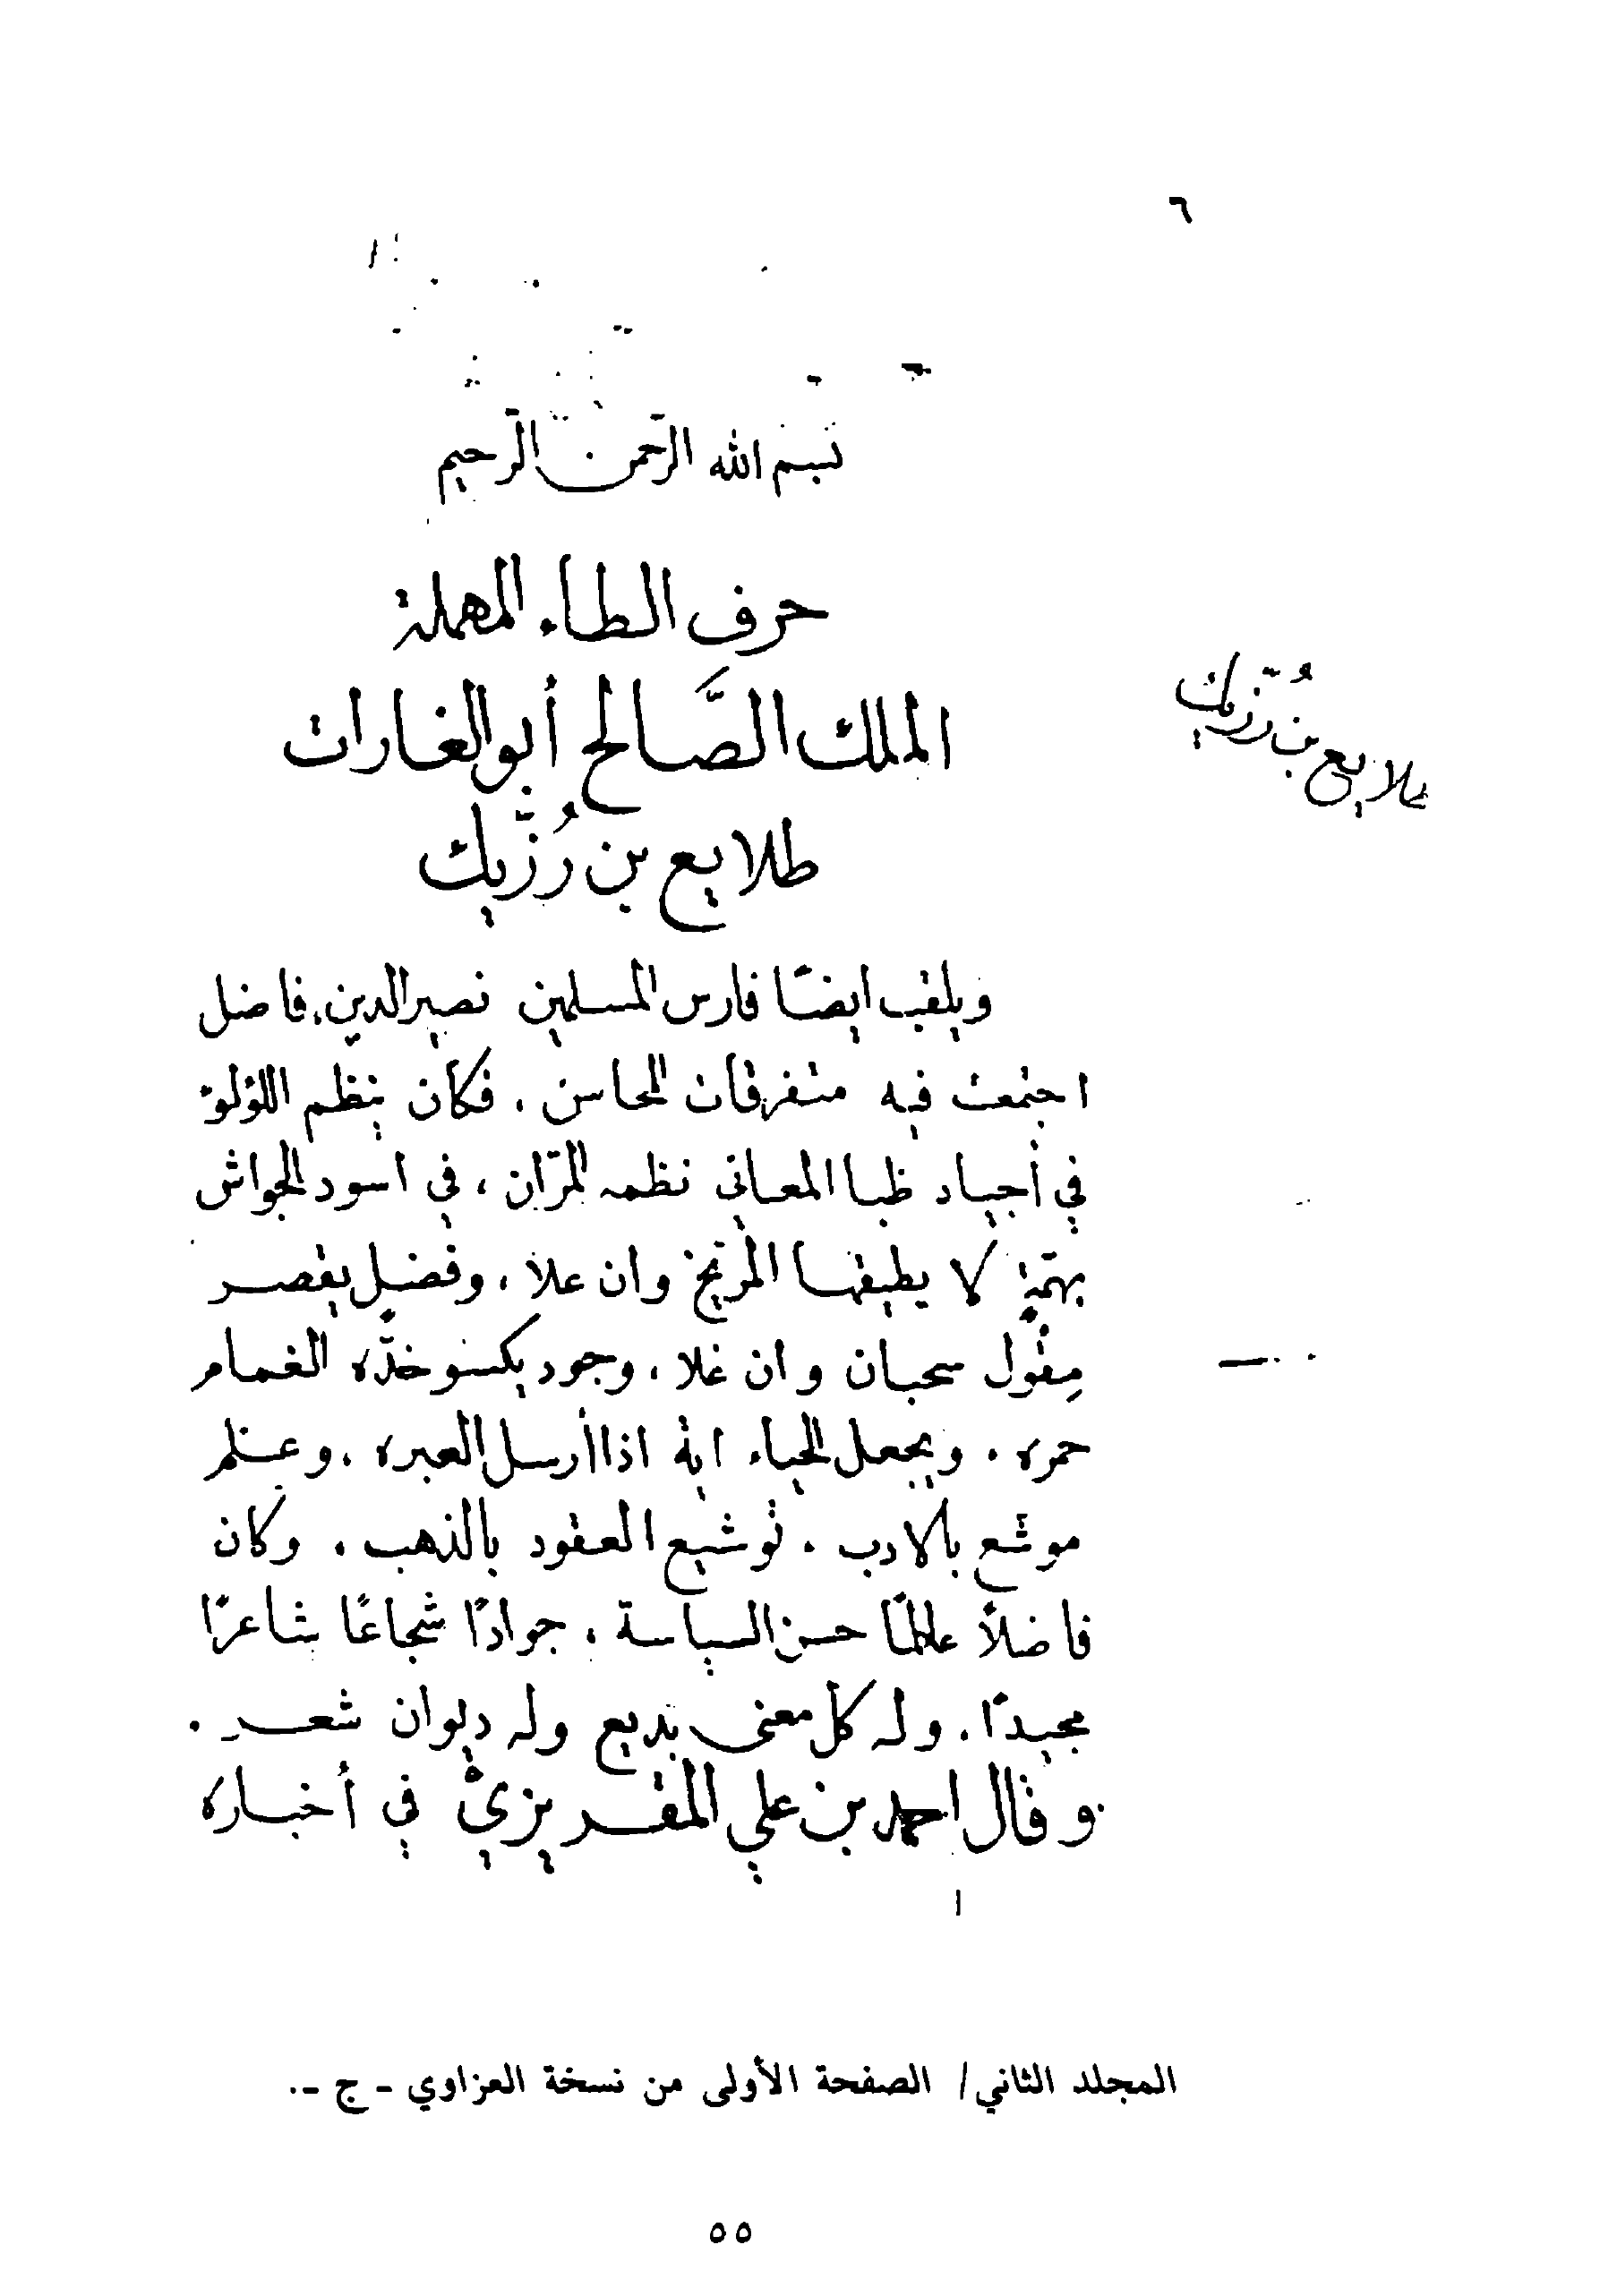 ٦
بسم الله الرحمن الرحيم
حرف الطاء المهملة
الملك الصَّالح أبو الغارات
طلايع بن رُزّيك
طلايع بن رُزّيك
ويلقب ايضًا فارس المسلمين نصير الدين، فاضل
اجتمعت فيه متفرقات المحاسن، فكان ينظم اللؤلؤ
في أجياد ظبا المعاني نظمه المرّان، في اسود الجواش
بهمّةٍ لا يطيقها المرّيخ وان علا، وفضل يقصر
مِقْول سحبان وان غلا، وجود يكسو خدّه الغمام
حمره، ويجعل الحياء انه اذا أرسل العبره، وعلم
موشّع بالادب، توشيع العقود بالذهب، وكان
فاضلًا عالمًا حسن السياسة، جوادًا شجاعًا شاعرًا
مجيدًا، وله كل معنى بديع وله ديوان شعر.
وقال احمد بن علي المقريزيّ في أخباره
المجلد الثاني / الصفحة الأولى من نسخة العزاوي - ج -.
٥٥